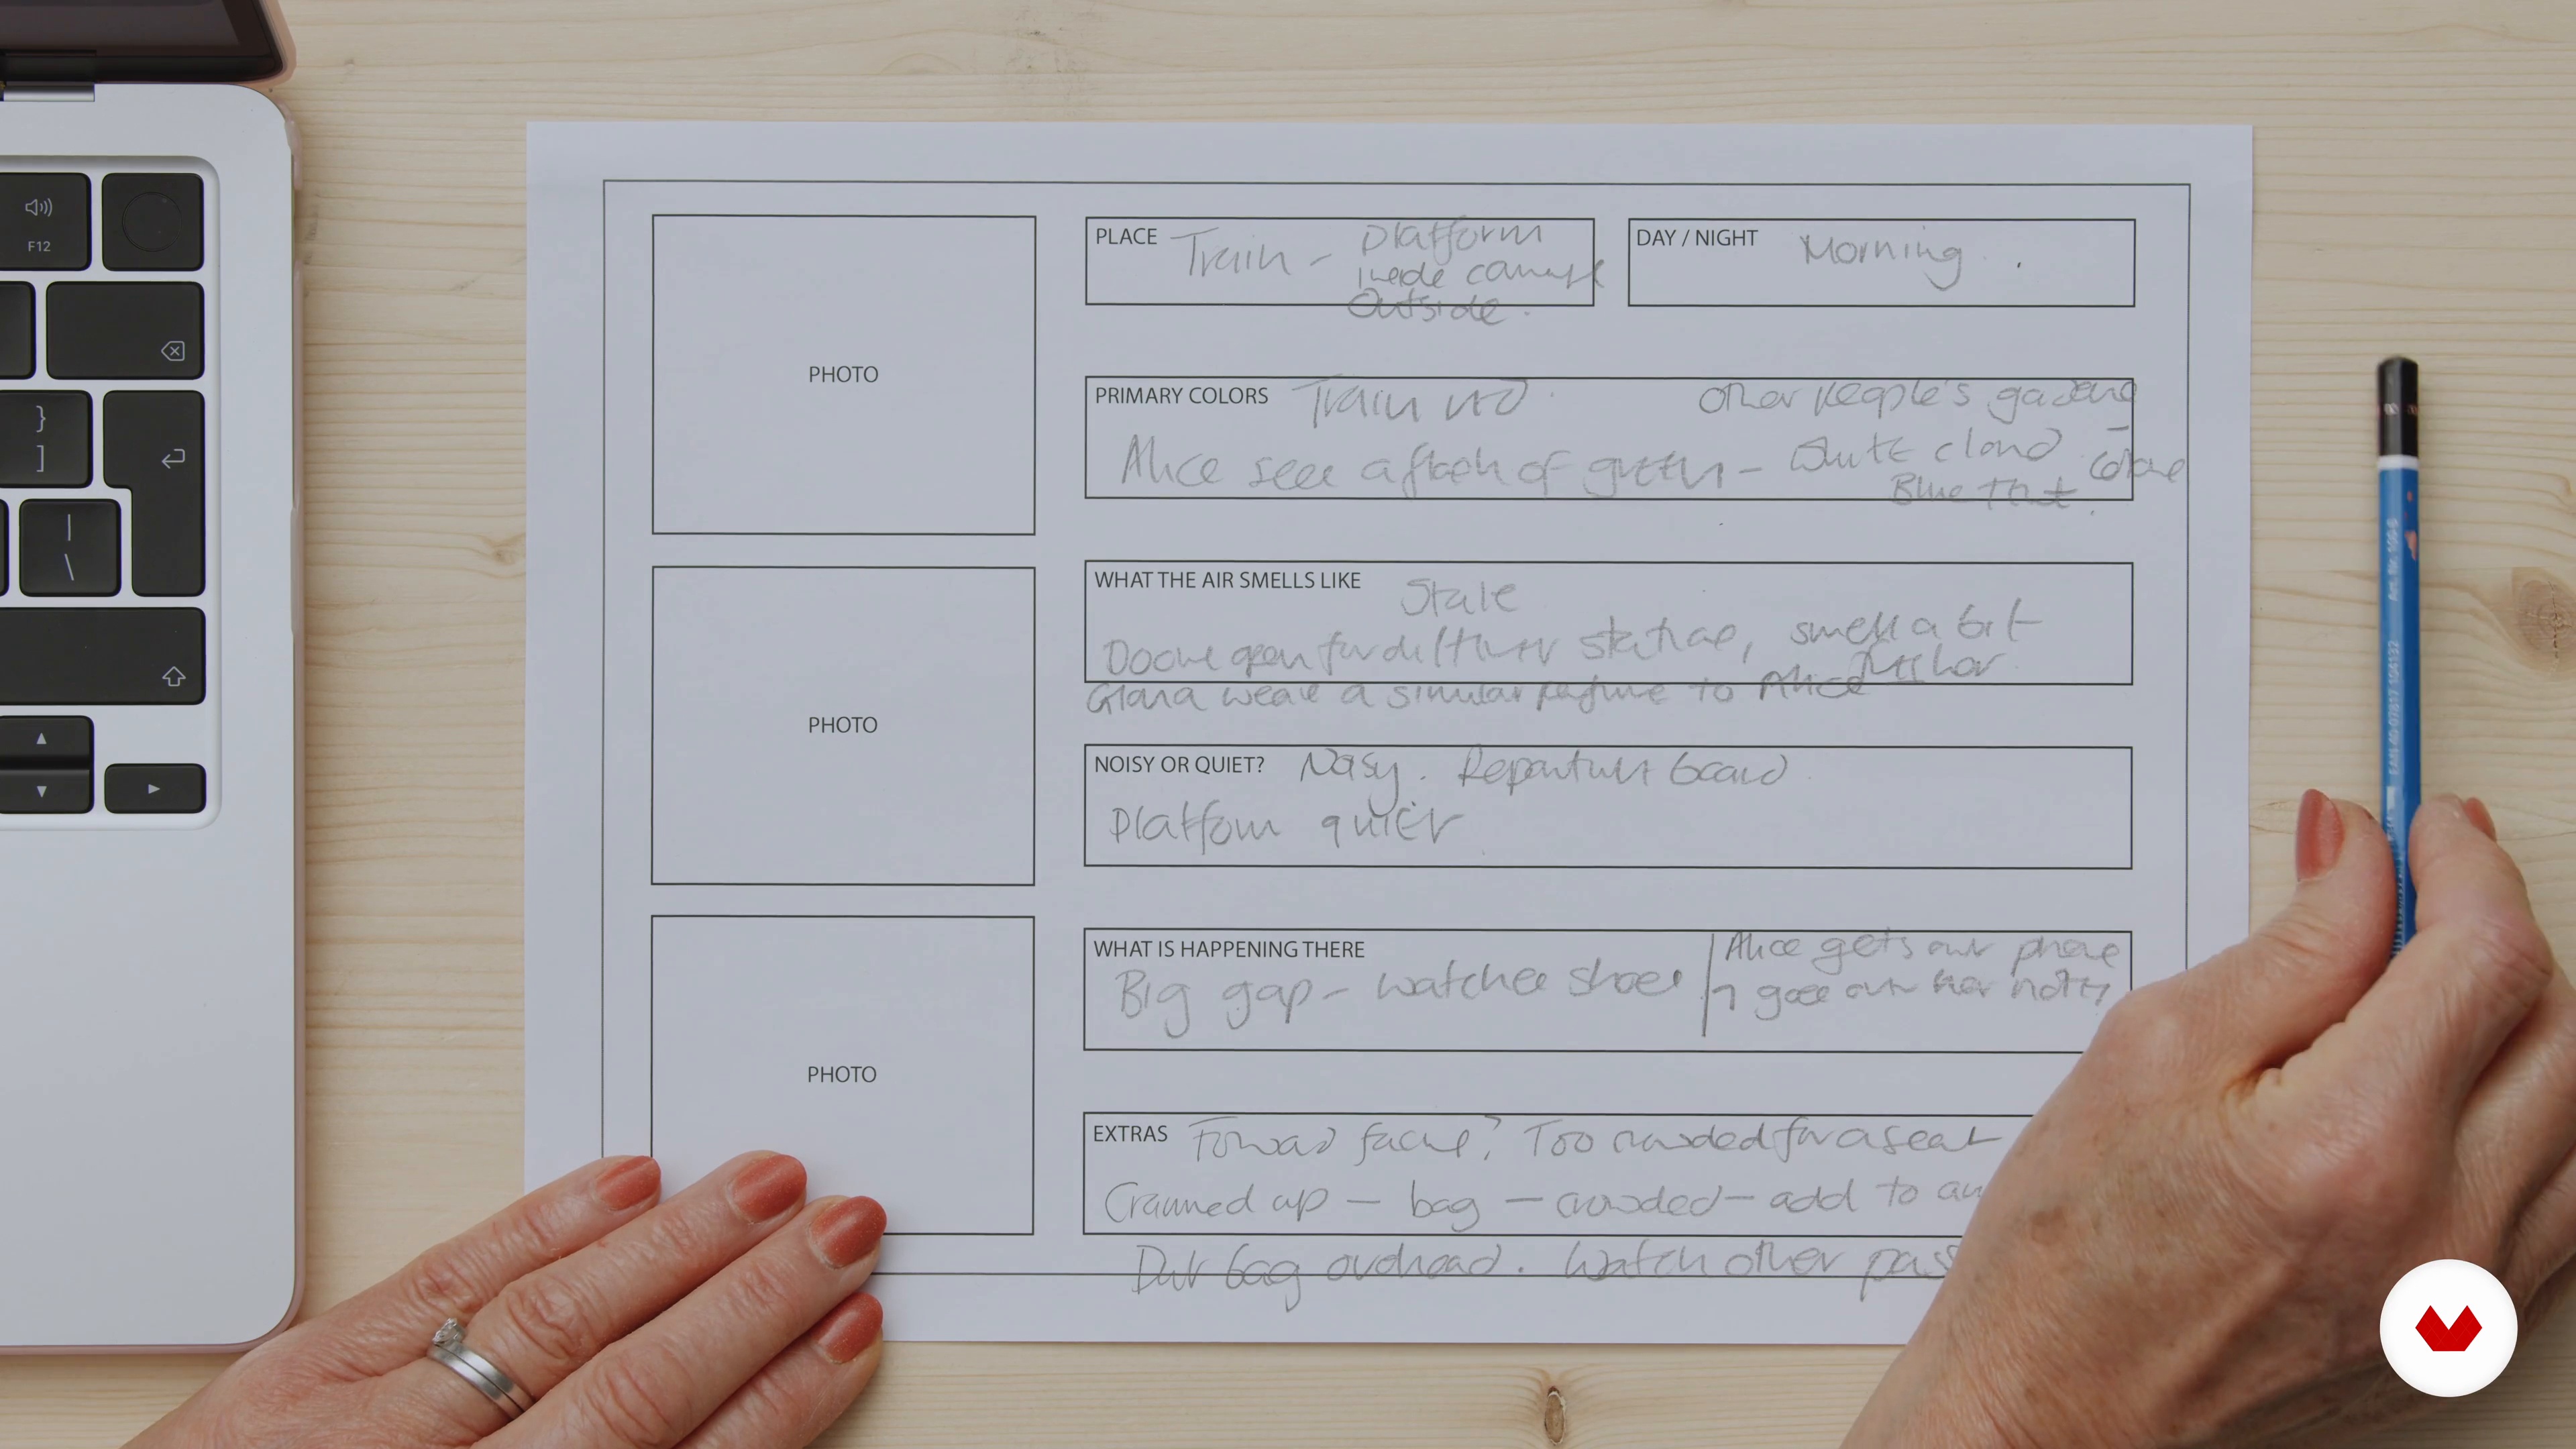 F12
}
]
|
\
PHOTO
PHOTO
PHOTO
PLACE Train - Platform
inside carriage
Outside.
DAY / NIGHT Morning.
PRIMARY COLORS Train red. Other people's gardens -
Alice sees a flash of green - White cloud
Blue that.
WHAT THE AIR SMELLS LIKE Stale
Doors open for different stations, smell a bit
fresher
Giana wears a similar perfume to Alice
NOISY OR QUIET? Noisy. Departure board
Platform quieter
WHAT IS HAPPENING THERE
Big gap - watches shoes
Alice gets out phone
goes over her notes
EXTRAS Forward facing? Too crowded for a seat
Crammed up - bag - crowded - add to
Put bag overhead. Watch other pass